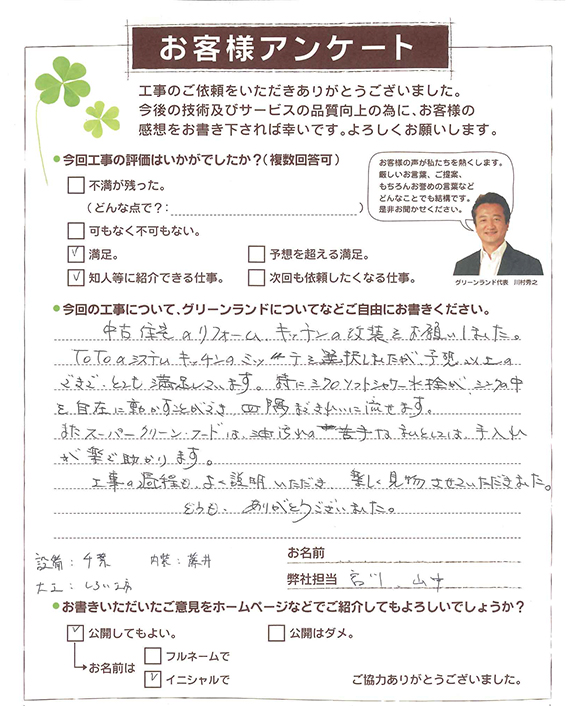 お客様アンケート
工事のご依頼をいただきありがとうございました。
今後の技術及びサービスの品質向上の為に、お客様の
感想をお書き下されば幸いです。よろしくお願いします。
今回工事の評価はいかがでしたか?(複数回答可)
不満が残った。
(どんな点で?: )
可もなく不可もない。
満足。
予想を超える満足。
知人等に紹介できる仕事。
次回も依頼したくなる仕事。
お客様の声が私たちを熱くします。
厳しいお言葉、ご提案、
もちろんお誉めの言葉など
どんなことでも結構です。
是非お聞かせください。
グリーンランド代表 川村秀之
今回の工事について、グリーンランドについてなどご自由にお書きください。
中古住宅のリフォーム、キッチンの改装をお願いしました。
TOTOのシステムキッチンのミッテを選択しましたが、予想以上の
できで、とても満足しています。特にミクロソフトシャワー水栓が、シンクの中
を自在に動かすことができ、四隅まできれいに流せます。
またスーパークリーンフードは、油汚れの苦手な私としては、手入れ
が楽で助かります。
工事の過程も、よく説明いただき 楽しく見物させていただきました。
どうも、ありがとうございました。
設備: 千葉 内装: 藤井
大工: しらい工房
お名前
弊社担当 宮川、山中
お書きいただいたご意見をホームページなどでご紹介してもよろしいでしょうか?
公開してもよい。
公開はダメ。
お名前は
フルネームで
イニシャルで
ご協力ありがとうございました。